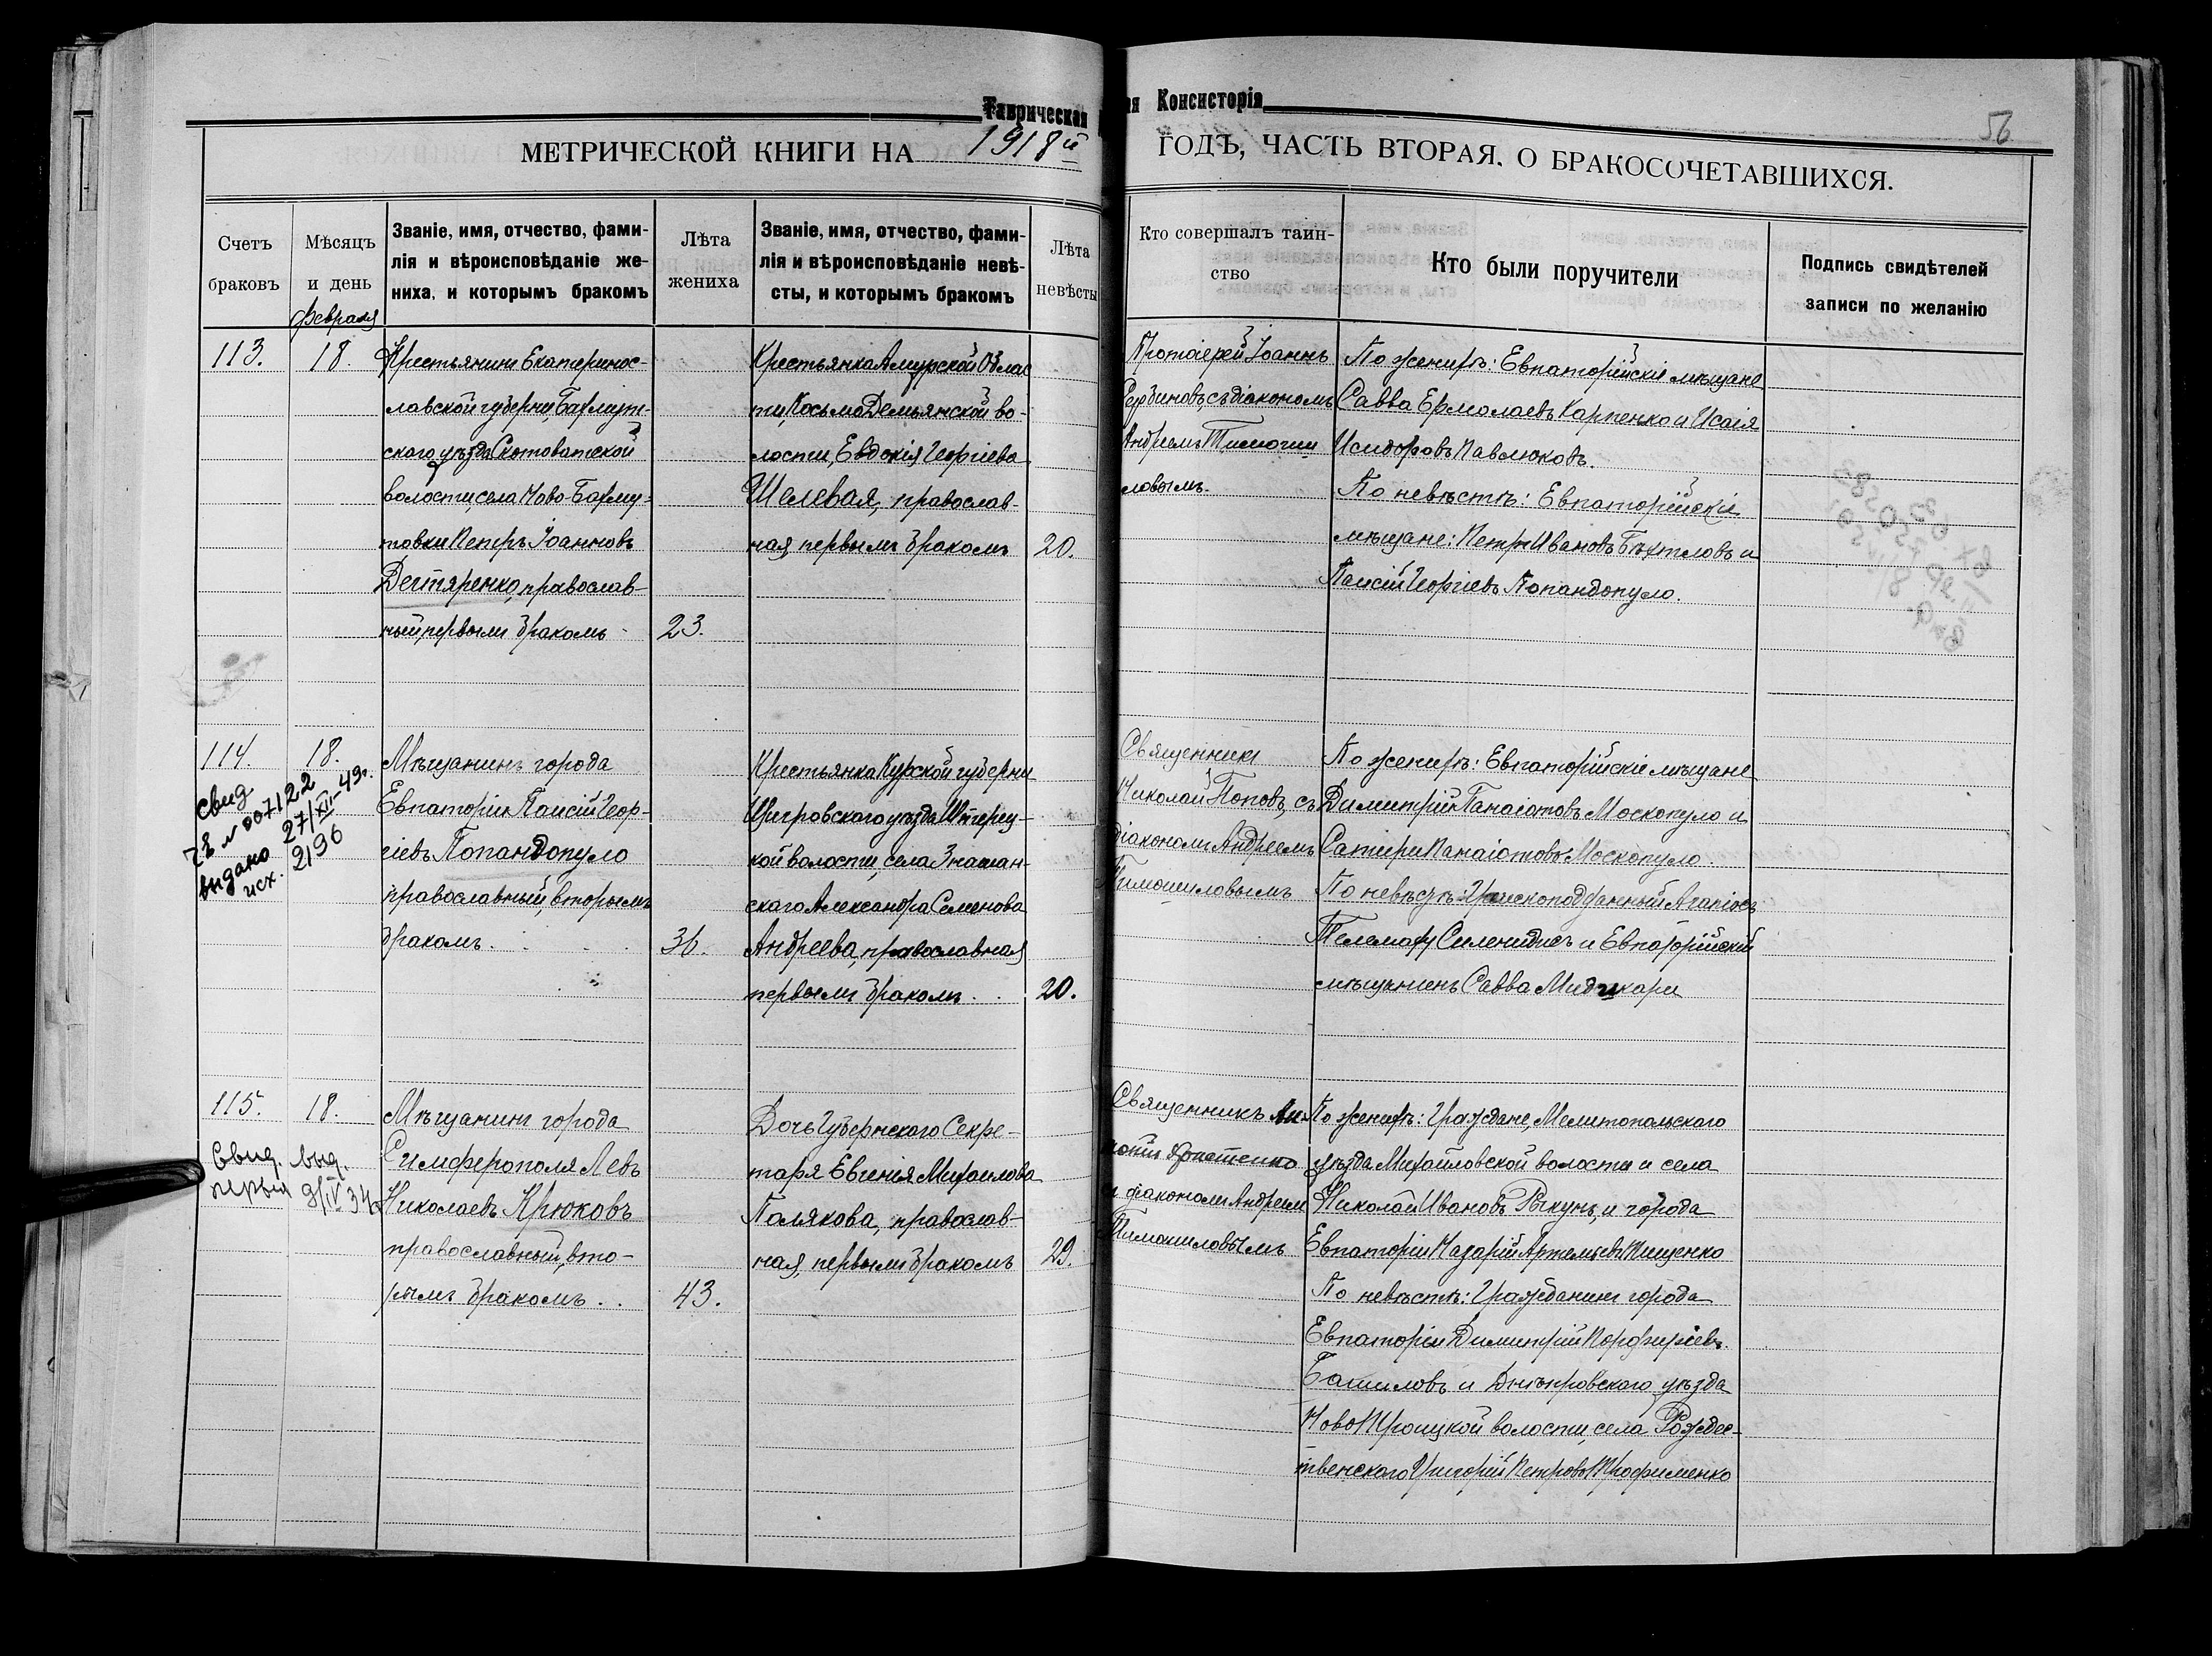 Таврическая
ая Консисторія
56
МЕТРИЧЕСКОЙ КНИГИ НА 1918й
ГОДЪ, ЧАСТЬ ВТОРАЯ. О БРАКОСОЧЕТАВШИХСЯ.
Счетъ браковъ
Мѣсяцъ и день
Февраля
Званіе, имя, отчество, фами-
лія и вѣроисповѣданіе же-
ниха, и которымъ бракомъ
Лѣта жениха
Званіе, имя, отчество, фами-
лія и вѣроисповѣданіе невѣ-
сты, и которымъ бракомъ
Лѣта невѣсты
Кто совершалъ таин-
ство
Кто были поручители
Подпись свидѣтелей
записи по желанію
113.
18.
Крестьянинъ Екатеринос-
лавской губерніи, Бахмут-
скаго уѣзда Скотоватской
волости, села Ново-Бахму-
товки Петръ Іоанновъ
Дегтяренко, православ-
ный, первымъ бракомъ
23.
Крестьянка Амурской Облас
ти, Косьмо Демьянской во-
лости, Евдокія Георгіева
Шелевая, православ-
ная, первымъ бракомъ
20.
Протоіерей Іоаннъ
Сербиновъ, съ діакономъ
Андреемъ Тимоши
ловымъ.
По женихѣ: Евпаторійскіе мѣщане
Савва Ермолаевъ Карпенко и Исаія
Исидоровъ Павлюковъ.
По невѣстѣ: Евпаторійскіе
мѣщане: Петръ Ивановъ Бѣхтловъ и
Паисій Георгіевъ Попандопуло.
114.
18.
Свид.
№ 007122
выдано 27/XII-49г.
исх. 2196
Мѣщанинъ города
Евпаторіи Паисій Геор-
гіевъ Попандопуло
православный, вторымъ
бракомъ.
36.
Крестьянка Курской губерніи
Щигровскаго уѣзда
кой волости, села Знаман-
скаго Александра Семенова
Андреева, православная
первымъ бракомъ.
20.
Священникъ
Николай Поповъ, съ
діакономъ Андреемъ
Тимошиловымъ
По женихѣ: Евпаторійскіе мѣщане
Димитрій Панаіотовъ Москопуло и
Сатири Панаіотовъ Москопуло.
По невѣстѣ: Греческоподданный
Телемаху Силенидисъ и Евпаторійскій
мѣщанинъ Савва
115.
18.
Свид. выд.
9/IV 34
Мѣщанинъ города
Симферополя Левъ
Николаевъ Крюковъ
православный, вто-
рымъ бракомъ. .
43.
Дочь Губернскаго Секре-
таря Евгенія Михаилова
Полякова, православ-
ная, первымъ бракомъ
29.
Священникъ
и діакономъ Андреемъ
Тимошиловымъ
По женихѣ: Граждане, Мелитопольскаго
уѣзда Михайловской волости и села
Николай Ивановъ Рыкунъ, и города
Евпаторіи Назарій Артемьевъ Тищенко
По невѣстѣ: Гражданинъ города
Евпаторіи Димитрій Порфиріевъ.
Башиловъ и Днѣпровскаго уѣзда
Ново Троицкой волости, села Рождес-
твенскаго Григорій Петровъ Трофименко